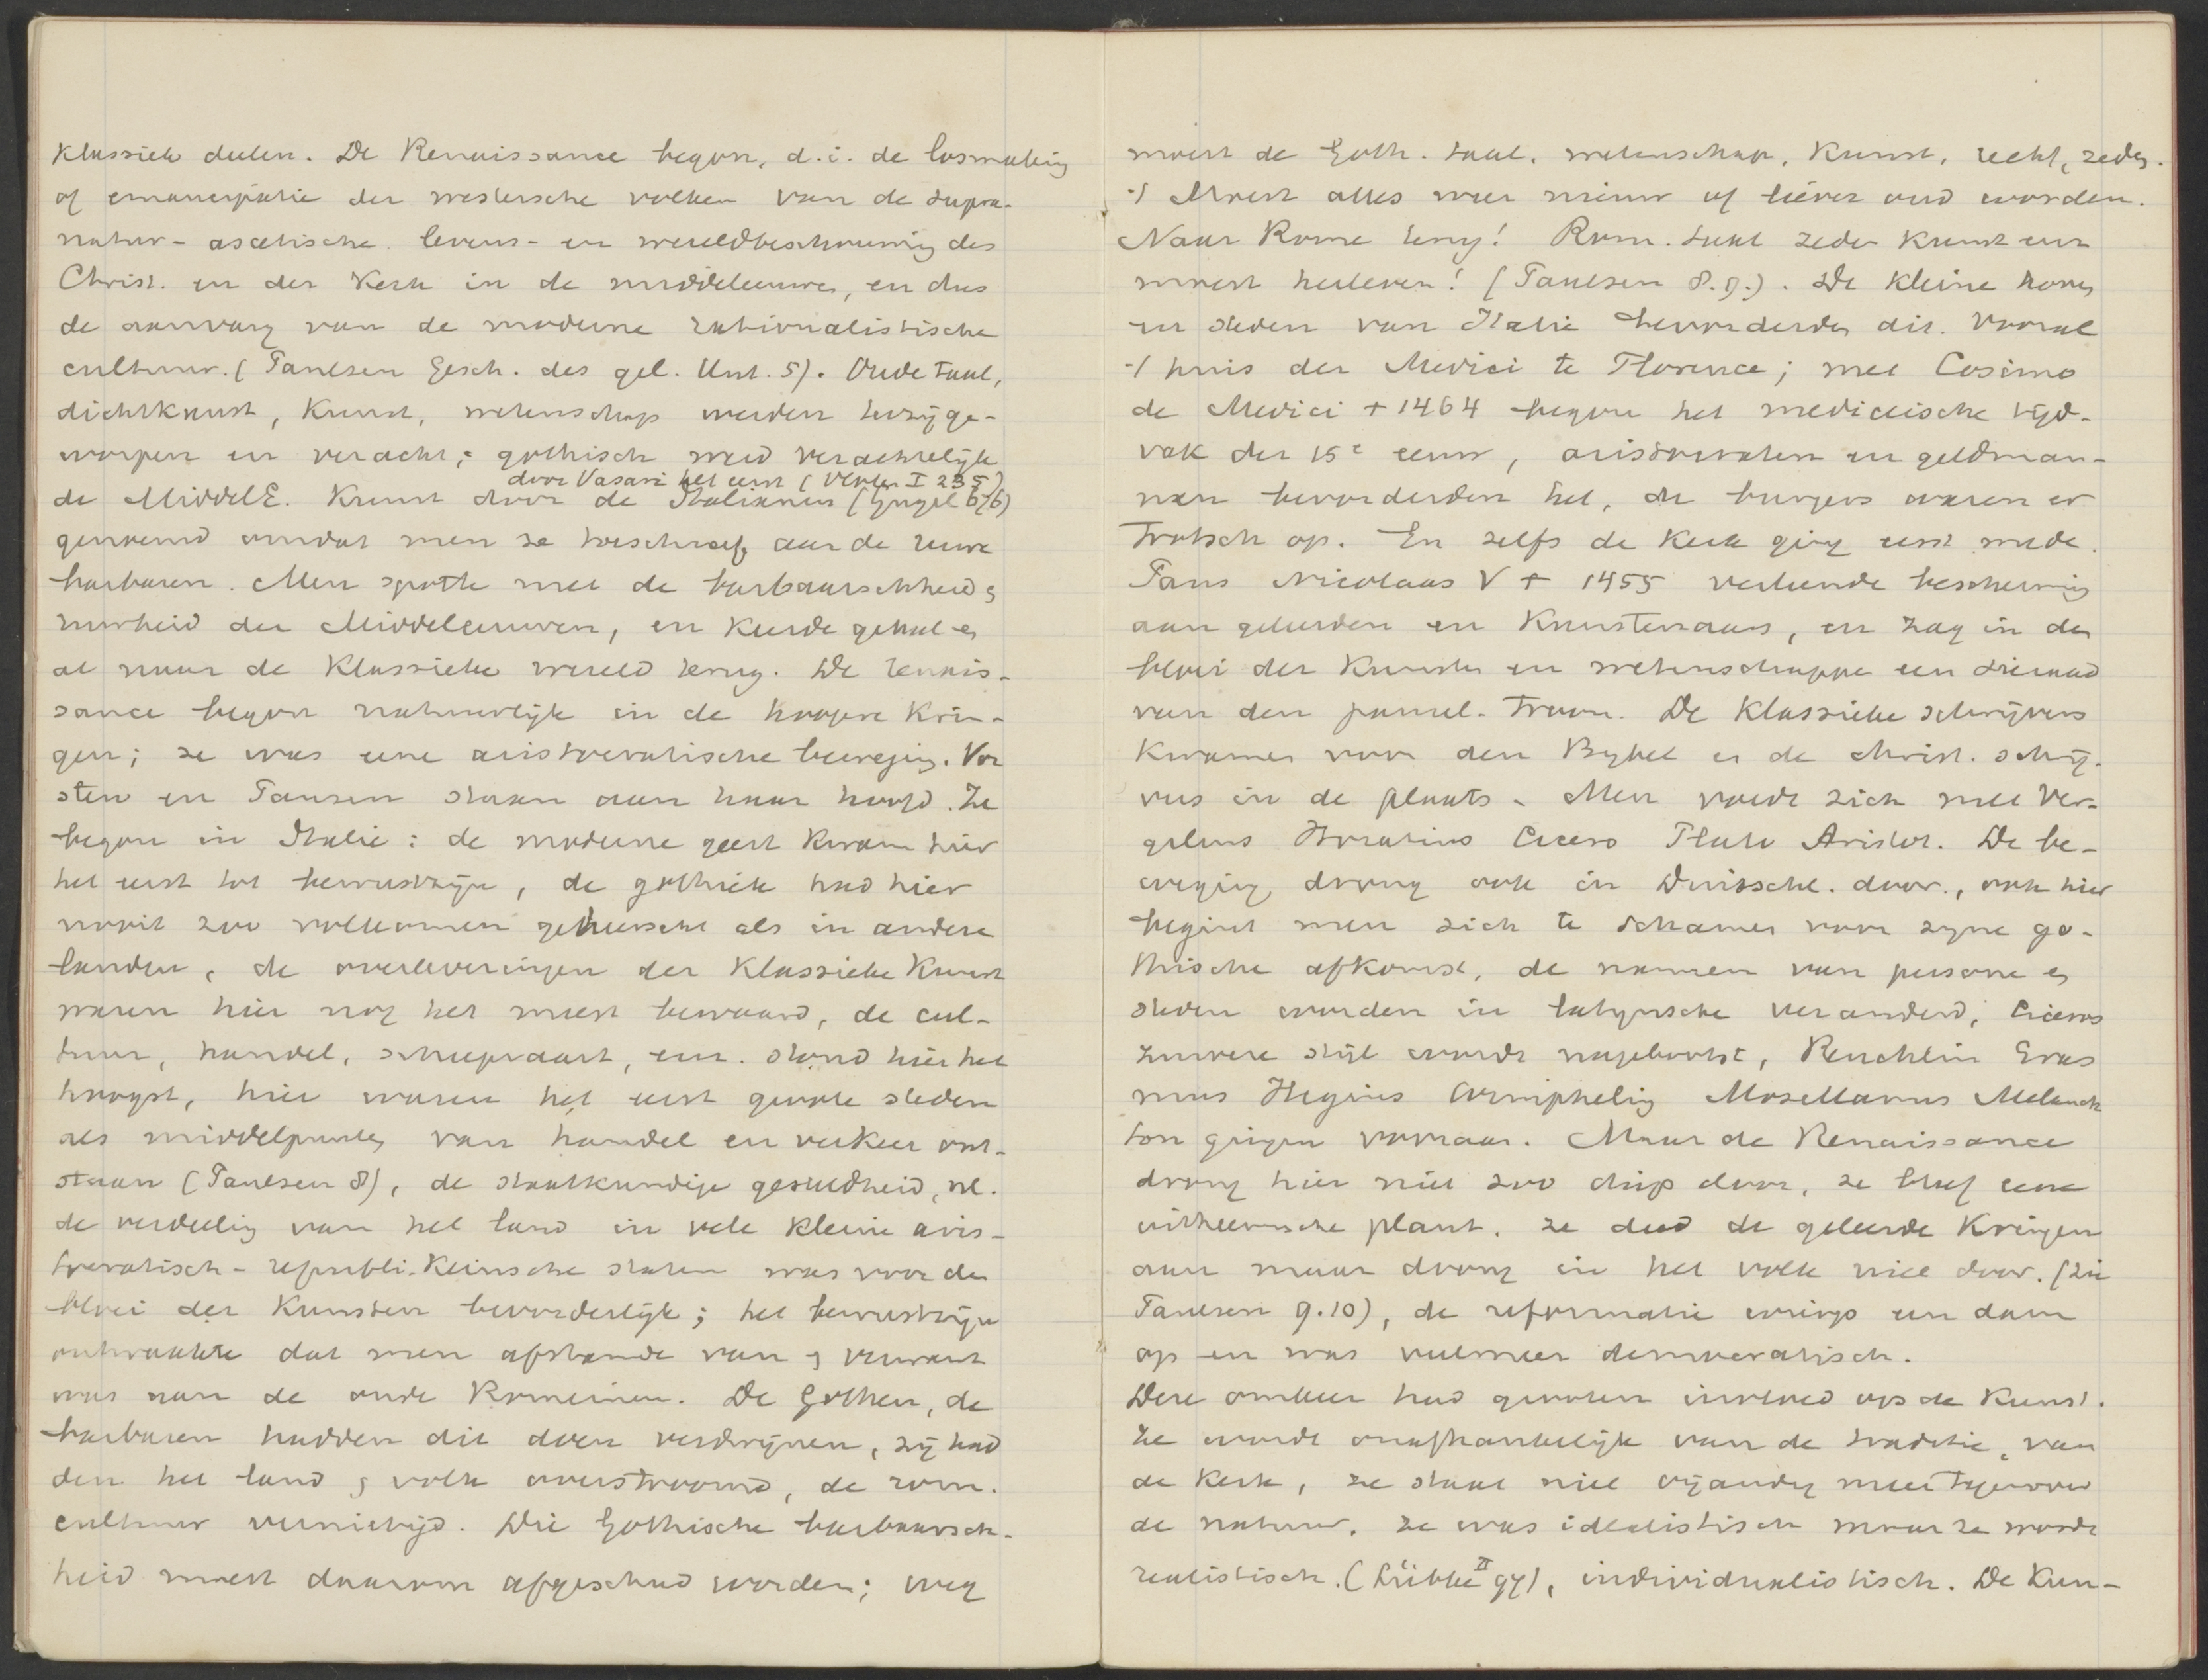 klassiek deelen. De Renaissance begon, d.i. de losmaking
of emancipatie der westersche volken van de supra-
natur-ascetische levens- en wereldbeschouwing des
Christ. en der Kerk in de middeleeuwen, en dus
de aanvang van de moderne rationalistische
cultuur. (Paulsen Gesch. des gel. Unt. 5). Oude taal,
dichtkunst, kunst, wetenschap werden terzijge-
worpen en veracht; gothisch werd verachtelijk
door Vasari het eerst (I 235)
de MiddelE. kunst door de Italianen (Gugel 676)
genoemd omdat men ze toeschreef aan de ruwe
barbaren. Men spotte met de barbaarschheid en
ruwheid der Middeleeuwen, en keerde geheel en
al naar de klassieke wereld terug. De renais-
sance begon natuurlijk in de hoogere krin-
gen; ze was eene aristocratische beweging. Vor
sten en Pausen staan aan haar hoofd. Ze
begon in Italie: de moderne geest kwam hier
het eerst tot bewustzijn, de gothiek had hier
nooit zoo volkomen geheerscht als in andere
landen, de overleveringen der klassieke kunst
waren hier nog het meest bewaard, de cul-
tuur, handel, scheepvaart, enz. stond hier het
hoogst, hier waren het eerst groote steden
als middelpunten van handel en verkeer ont-
staan (Paulsen 8), de staatkundige gesteldheid, nl.
de verdeeling van het land in vele kleine aris-
tocratisch-republi-keinsche staten was voor den
bloei der kunsten bevorderlijk; het bewustzijn
ontwaakte dat men afstamde van en verwant
was aan de oude Romeinen. De Gothen, de
barbaren hadden dit doen verdwijnen, zij had
den het land en volk overstroomd, de rom.
cultuur vernietigd. Die Gothische barbaarsch-
heid moest daarom afgeschud worden; weg
moest de Goth. taal, wetenschap, kunst, recht, zeden.
't Moest alles weer nieuw of liever oud worden.
Naar Rome terug! Rom. taal zeden kunst enz
moest herleven! (Paulsen 8.9.). De kleine hoven
en steden van Italie bevorderden dit. Vooral
't huis der Medici te Florence; met Cosimo
de Medici + 1464 begon het mediceische tijd-
vak der 15e eeuw, aristocraten en geldman-
nen bevorderden het, de burgers waren er
trotsch op. En zelfs de Kerk ging eerst mede.
Paus Nicolaas V + 1455 verleende bescherming
aan geleerden en Kunstenaars, en zag in den
bloei der kunsten en wetenschappen een sieraad
van den pausel. troon. De klassieke schrijvers
kwamen voor den Bijbel en de christ. schrij-
vers in de plaats. Men voedde zich met Ver-
gilius Horatius Cicero Plato Aristot. De be-
weging drong ook in Duitschl. door, ook hier
begint men zich te schamen voor zijne go-
thische afkomst, de namen van personen en
steden worden in latijnsche veranderd, Ciceros
zuivere stijl wordt nagebootst, Reuchlin Eras
mus Hegius Wimpheling Mosellanus Melanch
ton gingen vooraan. Maar de Renaissance
drong hier niet zoo diep door, ze bleef eene
uitheemsche plant, ze deed de geleerde kringen
aan maar drong in het volk niet door. (zie
Paulsen 9.10), de reformatie wierp een dam
op en was veelmeer democratisch.
Deze omkeer had grooten invloed op de kunst.
Ze wordt onafhankelijk van de traditie, van
de Kerk, ze staat niet vijandig meer tegenover
de natuur, ze was idealistisch maar ze wordt
realistisch. (Lübke II 94), individualistisch. De Kun-